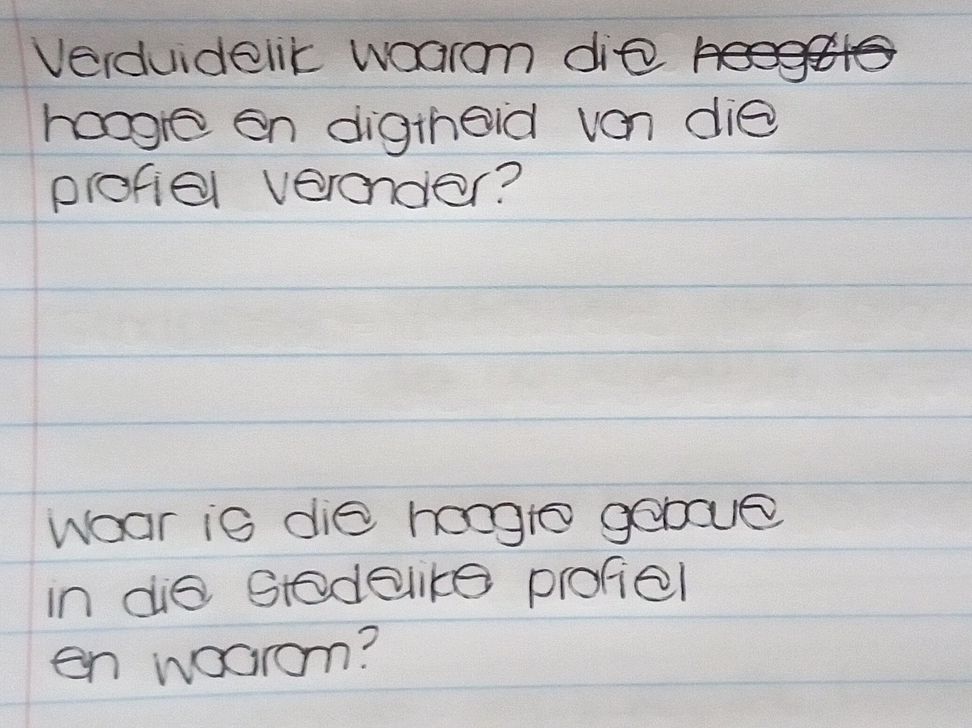 Verduidelik waarom die
hoogte en digtheid van die
profiel verander?
Waar is die hoogte geboue
in die stedelike profiel
en waarom?